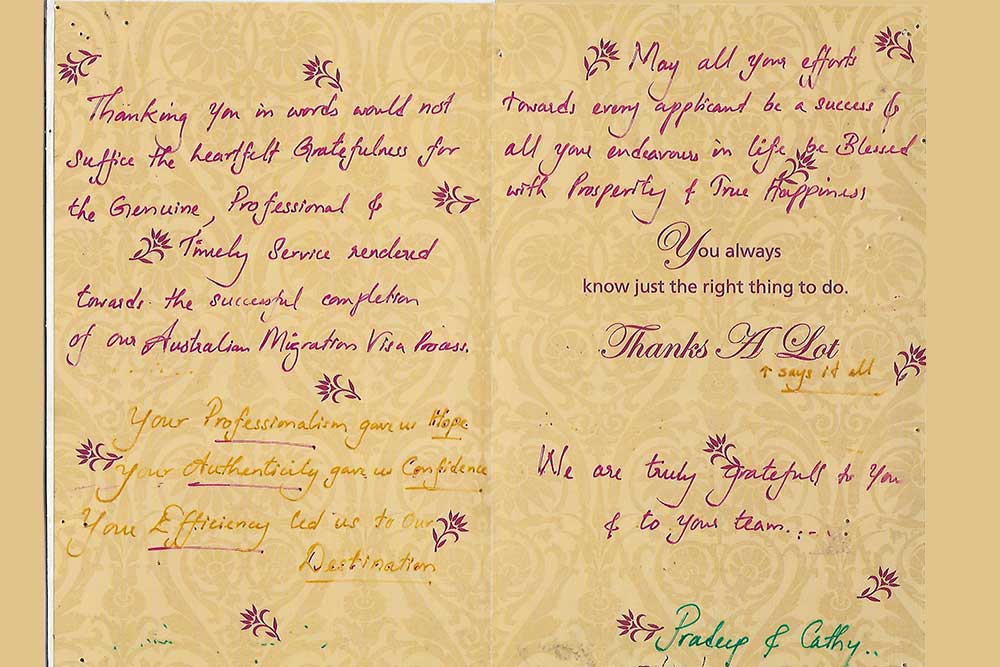 Thanking You in words would not
suffice the heartfelt Gratefulness for
the Genuine, Professional &
Timely Service rendered
towards the successful completion
of our Australian Migration Visa Process.
Your Professionalism gave us Hope
Your Authenticity gave us Confidence
Your Efficiency led us to our
Destination
May all your efforts
towards every applicant be a success &
all your endeavours in life be Blessed
with Prosperity & True Happiness
You always
know just the right thing to do.
Thanks A Lot
↑ says it all
We are truly gratefull to You
& to your team.....
Pradeep & Cathy..